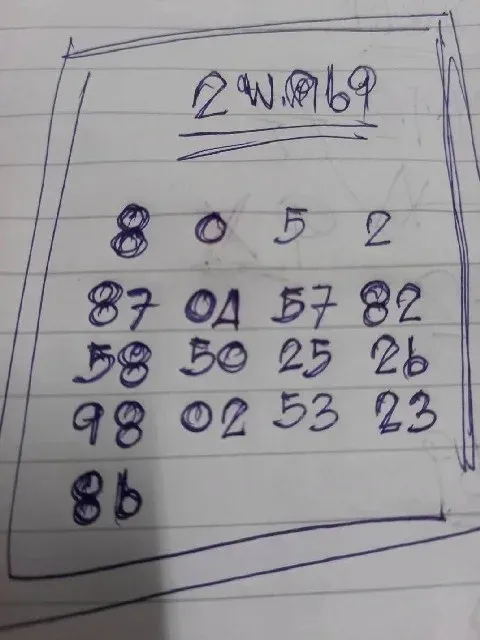 2 พ.ค69
8 0 5 2
87 04 57 82
58 50 25 26
98 02 53 23
86